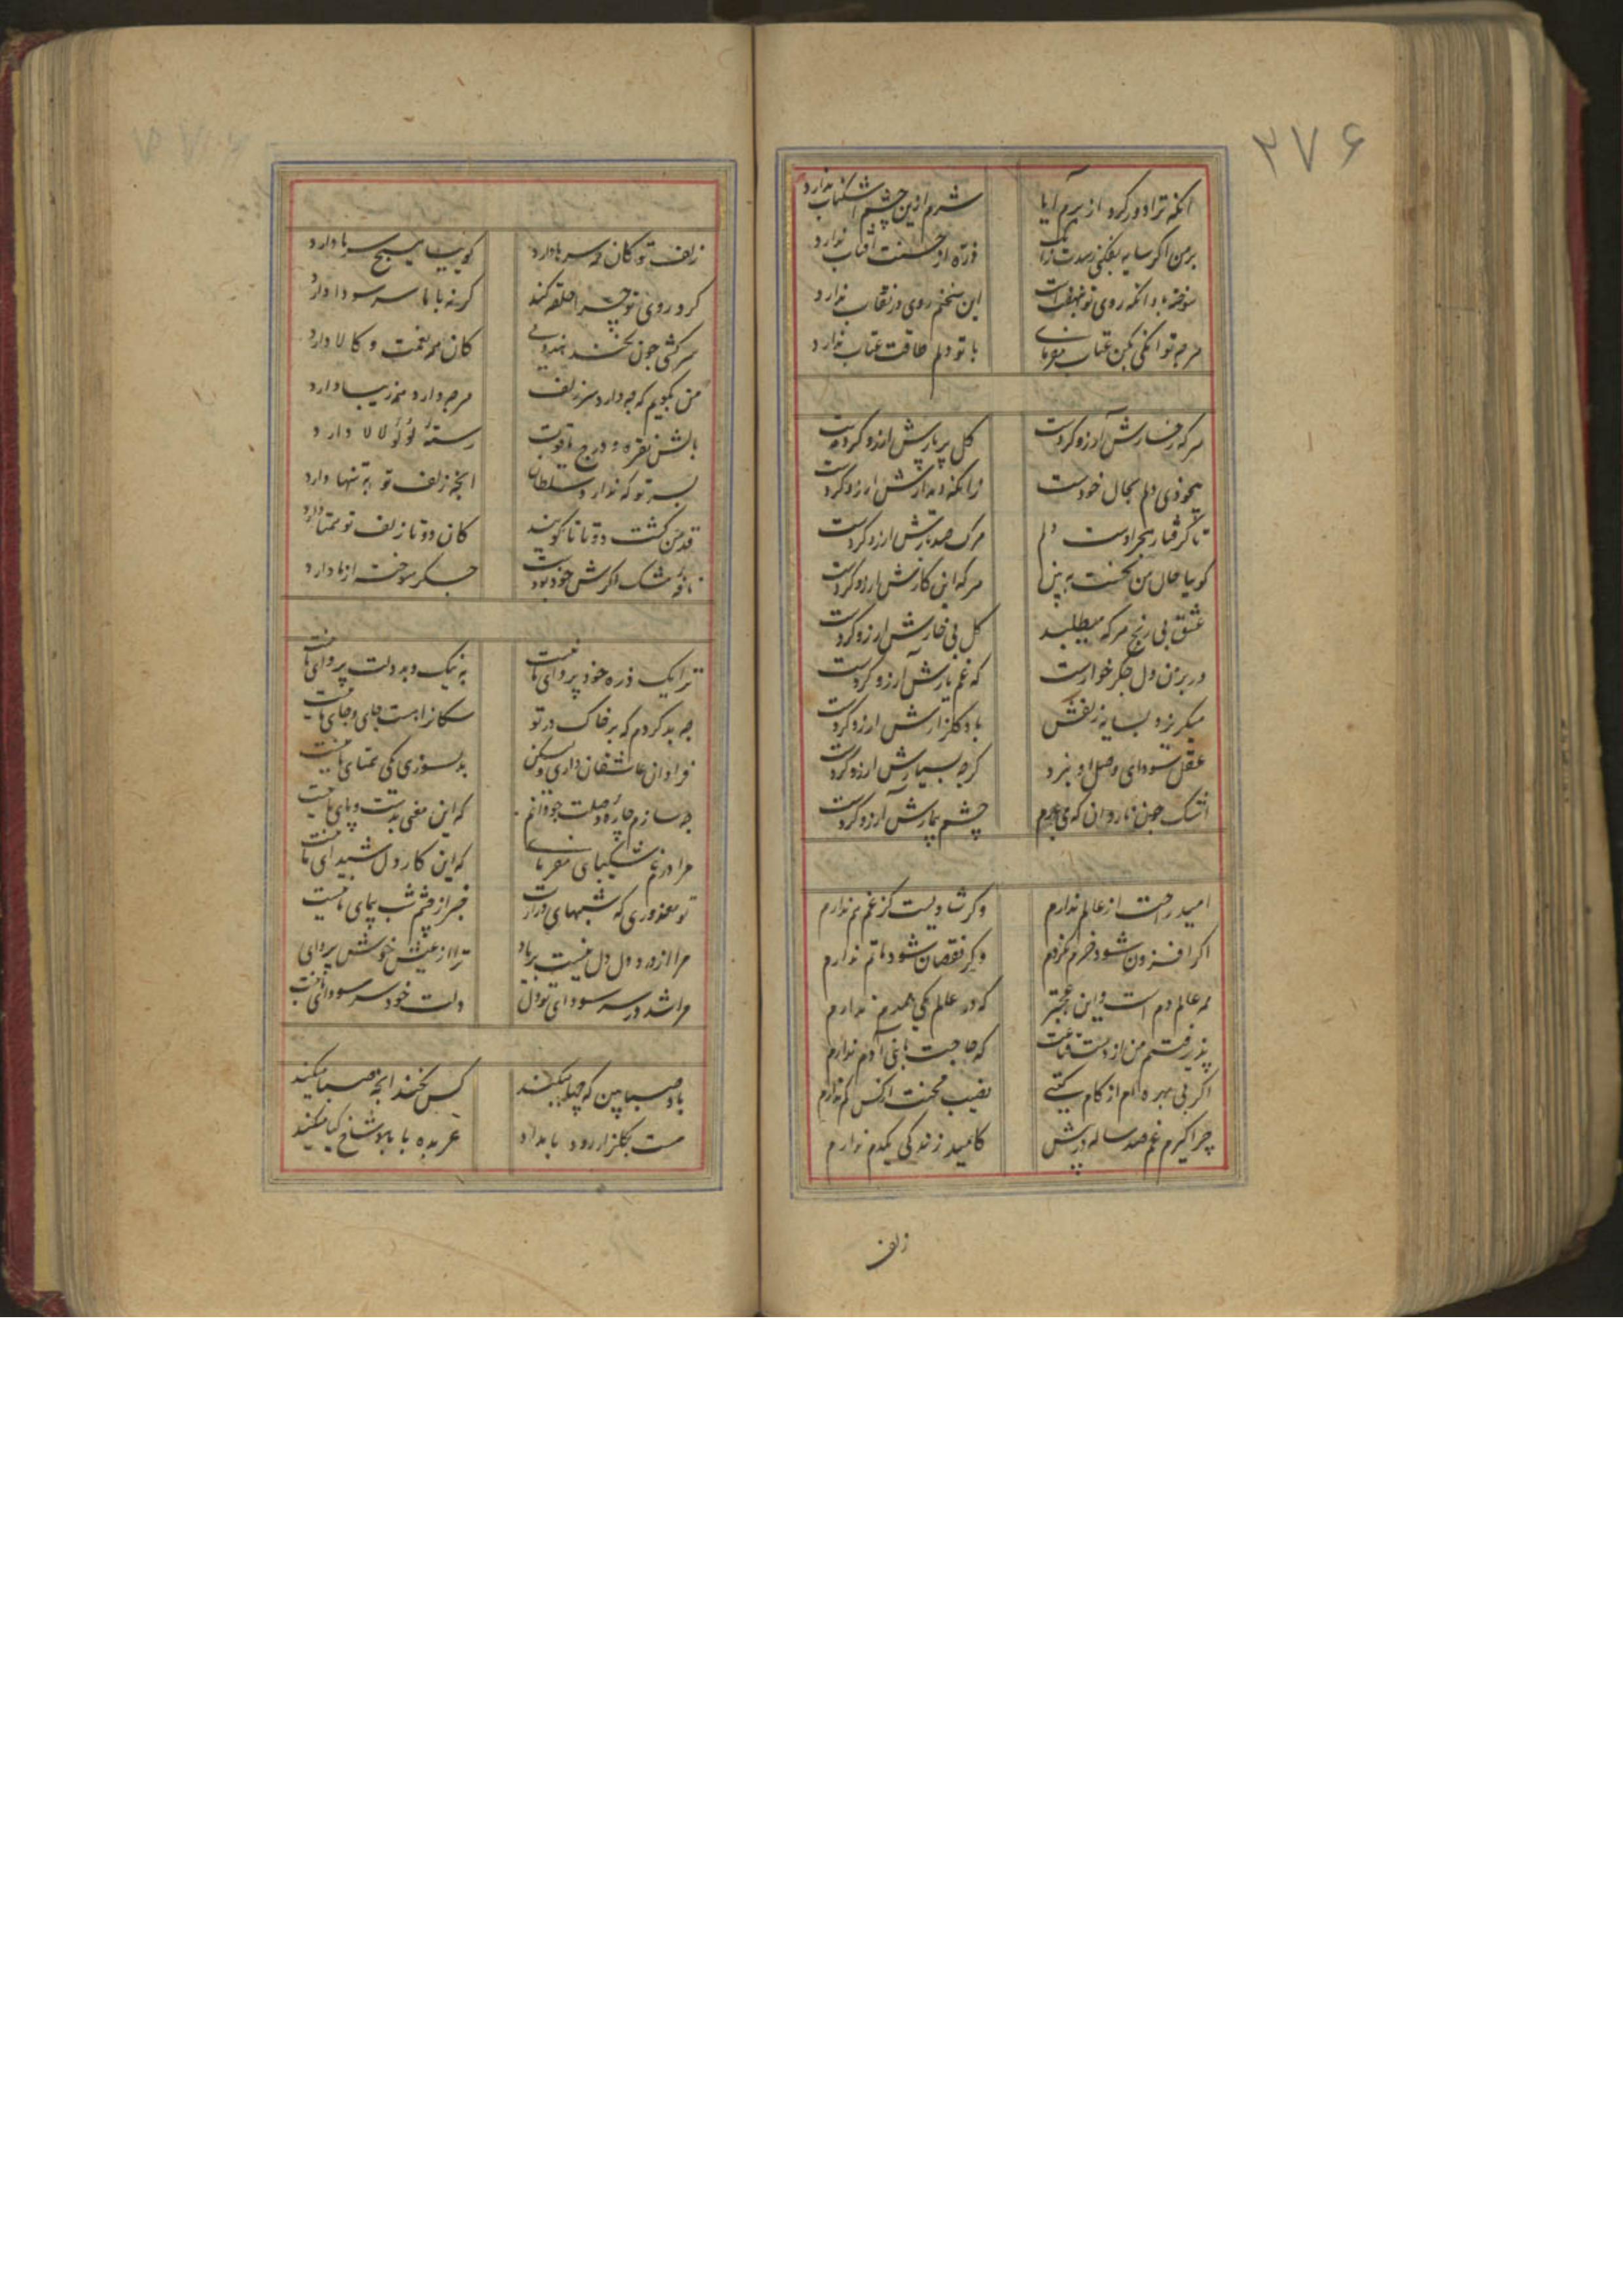 ۲۷۶
آنکه ترا دور کرد از برم آیا شرم ازین چشم اشکناب ندارد
بر من اگر سایه بفکنی رسدت زانک ذره از حسنت آفتاب ندارد
سوخته باد آنکه روی تو نهفتست این سخنم روی در نقاب ندارد
هرچه توانی بکن عتاب مفرمای با تو دلم طاقت عتاب ندارد
هر که رخسارش آرزو کردست گل پربارش آرزو کردست
بیخودی دلم بحال خودست زانکه دیدارش آرزو کردست
تا گرفتار هجر اوست دلم مرک صد بارش آرزو کردست
کو بیا حال من نخست ببین هر که این کارش آرزو کردست
عشق بی رنج هر که میطلبد گل بی خارش آرزو کردست
در بر من دل جگر خوارست که غم یارش آرزو کردست
میگریزد بسایه زلفش باد گلزارش آرزو کردست
عقل سودای وصل او نبرد گرچه بسیارش آرزو کردست
اشک چون ناروان که می چشم بیمارش آرزو کردست
امید راحت از عالم ندارم وگر شادیست کز غم هم ندارم
اگر افزون شود خرم نگردم وگر نقصان شود ماتم ندارم
همه عالم دم است و این عجبتر که در عالم یکی همدم ندارم
پذیرفتم من از دست قناعت که حاجت با بنی آدم ندارم
اگر بی بهره ام از کام گیتی نصیب محنت از کس کم ندارم
چرا گیرم غم صد ساله در پیش کامید زندگی یکدم ندارم
زلف
زلف تو کان همه سرها دارد گوییا هیچ سر ما دارد
گرد روی تو چرا حلقه کند گر نه با ما سر سودا دارد
سرکشی چون نکند هندویی کان همه نعمت و کالا دارد
من نگویم که چه دارد سر زلف هرچه دارد همه زیبا دارد
بالش نقره و درج یاقوت رسته لؤلؤ لالا دارد
بسر تو که ندارد سلطان آنچه زلف تو به تنها دارد
قد من گشت دوتا تا گویند کان دوتا زلف تو همتا دارد
نافه مشک اگرش خود بودست جگر سوخته از ما دارد
ترا یک ذره خود پروای ما نیست به نیک و بد دلت پروای ما نیست
چه بد کردم که بر خاک در تو سگانرا هست جای و جای ما نیست
فراوان عاشقان داری ولیکن بدلسوزی یکی همتای ما نیست
چه سازم چاره وصلت چو دانم که این معنی بدست و پای ما نیست
مرا در غم شکیبایی مفرمای که این کار دل شیدای ما نیست
تو معذوری که شبهای درازت خبر از چشم شب پیمای ما نیست
مرا از درد دل دل نیست بر یاد ترا از عیش خوش پروای ما نیست
مرا شد در سر سودای تو دل دلت خود سر سودای ما نیست
باد صبا بین که چها میکند کس نکند آنچه صبا میکند
مست بگلزار رود بامداد عربده با شاخ گیا میکند